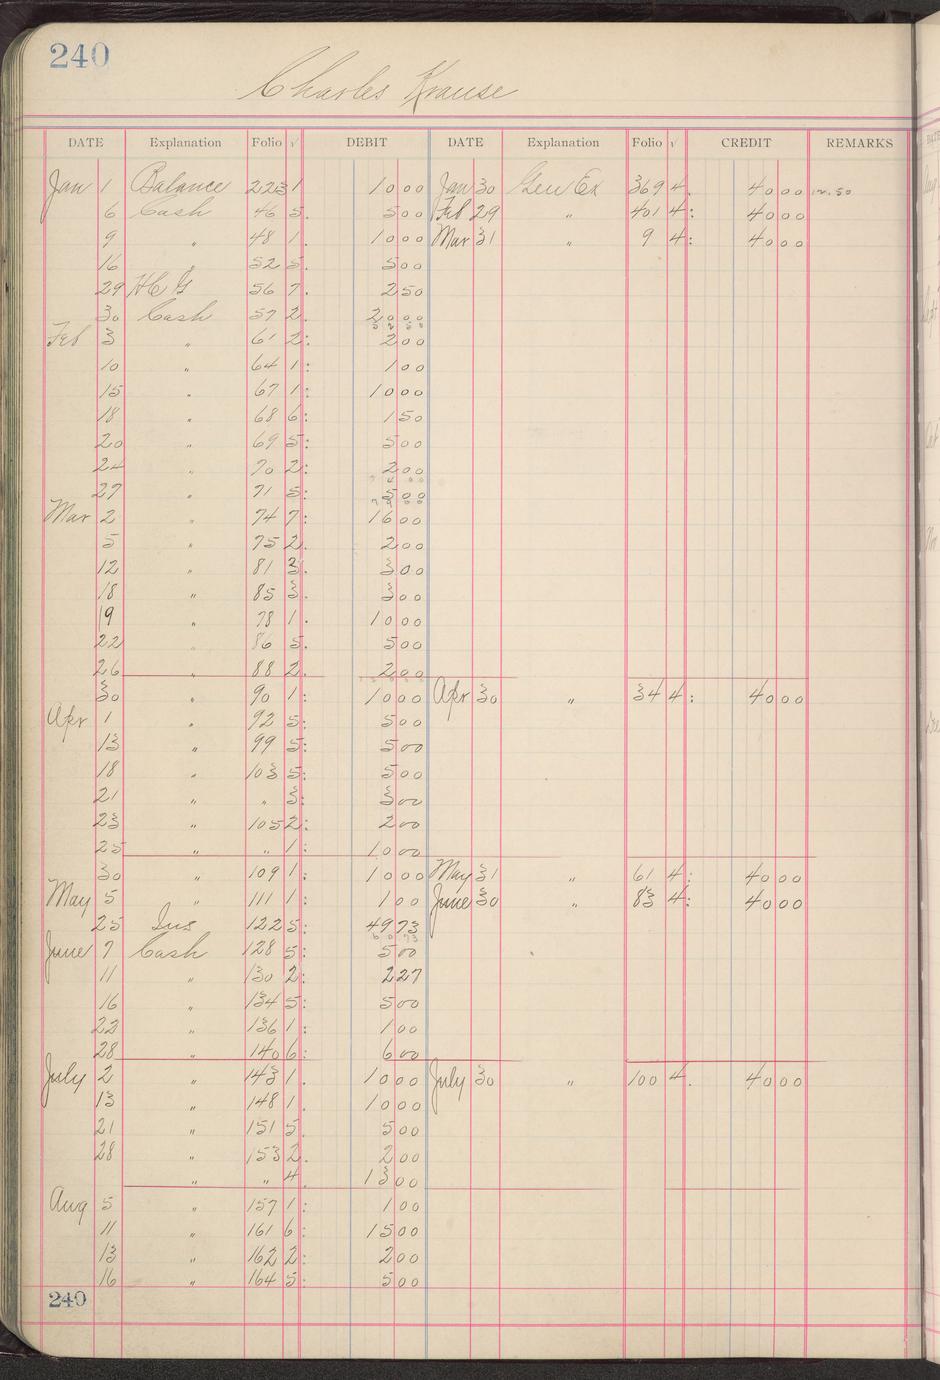 240
Charles Krause
DATE Explanation Folio √ DEBIT DATE Explanation Folio √ CREDIT REMARKS
Jan 1 Balance 223 1 10 00 Jan 30 Gen Ex 369 4. 40 00 12.50
6 Cash 46 5. 5 00 Feb 29 " 401 4: 40 00
9 " 48 1. 10 00 Mar 31 " 9 4: 40 00
16 " 52 5. 5 00
29 HC G 56 7. 2 50
30 Cash 57 2. 20 00
Feb 3 " 61 2: 2 00
10 " 64 1: 1 00
15 " 67 1: 10 00
18 " 68 6: 1 50
20 " 69 5: 5 00
24 " 70 2: 2 00
27 " 71 5: 5 00
Mar 2 " 74 7: 16 00
5 " 75 2. 2 00
12 " 81 3. 3 00
18 " 85 3. 3 00
19 " 78 1. 10 00
22 " 86 5. 5 00
26 " 88 2. 2 00
30 " 90 1: 10 00 Apr 30 " 34 4: 40 00
Apr 1 " 92 5: 5 00
13 " 99 5: 5 00
18 " 103 5: 5 00
21 " " 3: 3 00
23 " 105 2: 2 00
25 " " 1: 10 00
30 " 109 1: 10 00 May 31 " 61 4: 40 00
May 5 " 111 1: 1 00 June 30 " 83 4: 40 00
25 Ins 122 5: 49 73
June 7 Cash 128 5: 5 00
11 " 130 2: 2 27
16 " 134 5: 5 00
22 " 136 1: 1 00
28 " 140 6: 6 00
July 2 " 143 1. 10 00 July 30 " 100 4. 40 00
13 " 148 1. 10 00
21 " 151 5. 5 00
28 " 153 2. 2 00
" " 4. 13 00
Aug 5 " 157 1: 1 00
11 " 161 6: 15 00
13 " 162 2: 2 00
16 " 164 5: 5 00
240